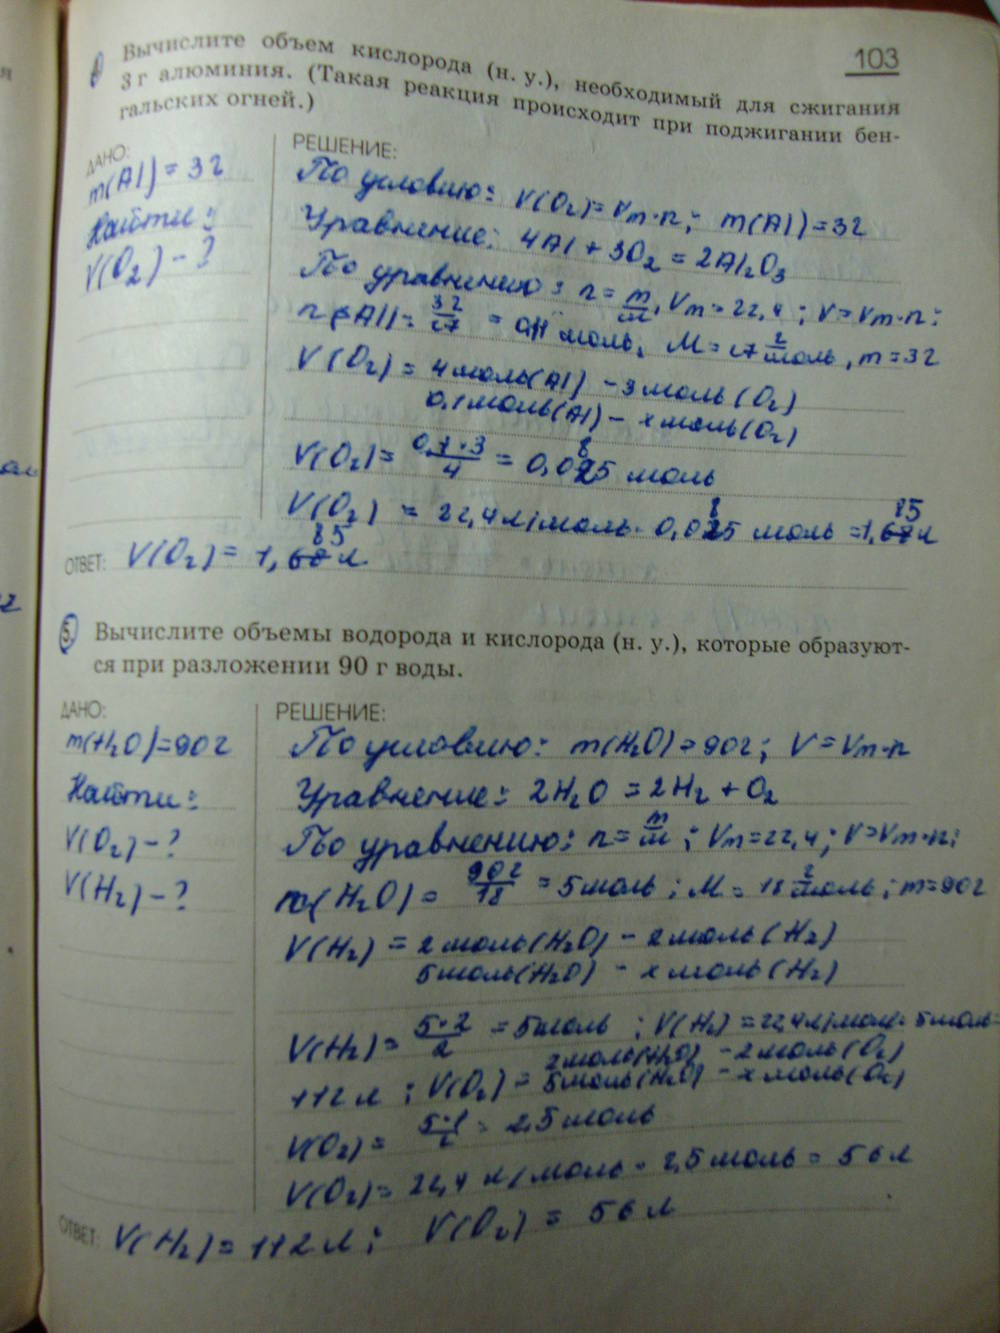 103
Вычислите объем кислорода (н. у.), необходимый для сжигания
3 г алюминия. (Такая реакция происходит при поджигании бен-
гальских огней.)
ДАНО:
m(Al) = 3г
Найти:
V(O₂) - ?
РЕШЕНИЕ:
По условию: V(O₂)= Vm·n; m(Al)=3г
Уравнение: 4Al + 3O₂ = 2Al₂O₃
По уравнению: n = m/m, Vm = 22,4; V= Vm·n:
n(Al)= 3г/27 = 0,11 моль; M = 27 г/моль, m=3г
V(O₂) = 4 моль(Al) - 3 моль(O₂)
0,1 моль(Al) - x моль(O₂)
V(O₂)= 0,1·3/4 = 0,085 моль
V(O₂) = 22,4 л/моль · 0,085 моль = 1,85 л
ОТВЕТ: V(O₂) = 1,85 л
5. Вычислите объемы водорода и кислорода (н. у.), которые образуют-
ся при разложении 90 г воды.
ДАНО:
m(H₂O)=90г
Найти:
V(O₂) - ?
V(H₂) - ?
РЕШЕНИЕ:
По условию: m(H₂O)=90г; V = Vm·n
Уравнение: 2H₂O = 2H₂ + O₂
По уравнению: n = m/m; Vm=22,4; V=Vm·n;
(H₂O) = 90г/18 = 5 моль; M = 18 г/моль; m=90г
V(H₂) = 2 моль(H₂O) - 2 моль(H₂)
5 моль(H₂O) - x моль(H₂)
V(H₂)= 5·2/2 = 5 моль; V(H₂) = 22,4 л/моль · 5 моль=
112 л; V(O₂) = 2 моль(H₂O) - 2 моль(O₂)
5 моль(H₂O) - x моль(O₂)
V(O₂)= 5·1/2 = 2,5 моль
V(O₂)= 22,4 л/моль · 2,5 моль = 56 л
ОТВЕТ: V(H₂) = 112 л; V(O₂) = 56 л